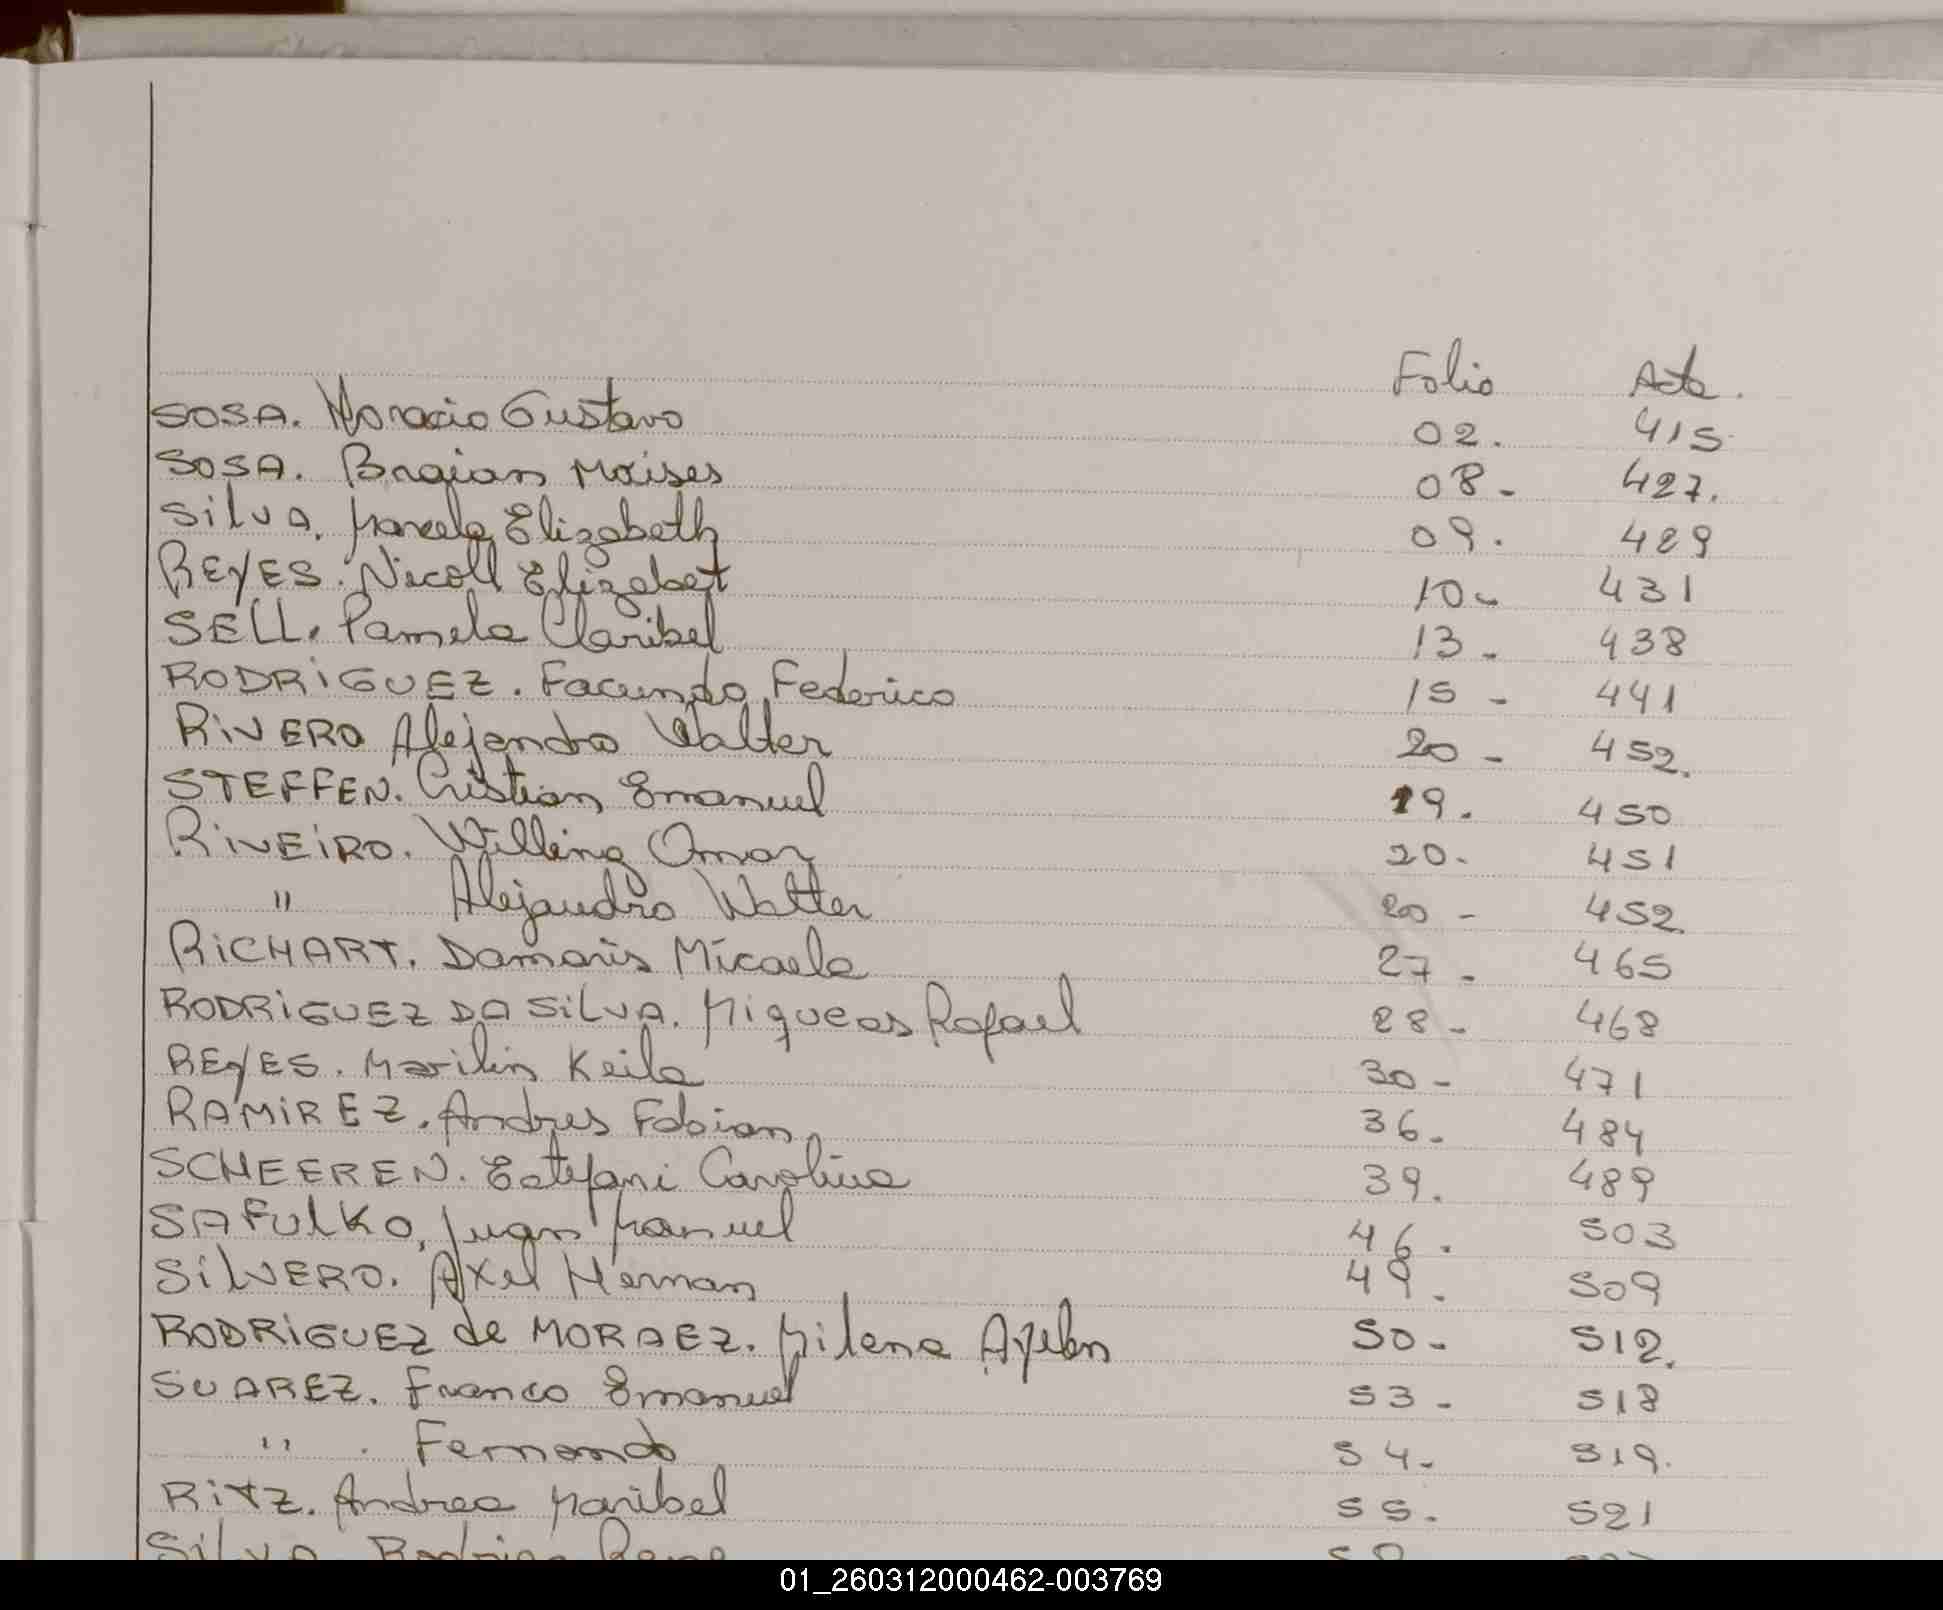 Folio Acta.
SOSA. Horacio Gustavo 02. 415.
SOSA. Braian Moises 08- 427.
SilVA. Marcela Elizabeth 09. 429
REYES. Nicoll Elizabet 10- 431
SELL. Pamela Claribel 13- 438
RODRiGUEZ. Facundo Federico 15- 441
RiVERO Alejandro Walter 20- 452.
STEFFEN. Cristian Emanuel 19. 450
RiVEiRO. Omar 20- 451
" Alejandro Walter 20- 452.
RiCHART. Damaris Micaela 27- 465
RODRiGUEZ DA SilVA. Miqueas Rafael 28- 468
REYES. Marilin Keila 30- 471
RAMiREZ. Andres Fabian 36. 484
SCHEEREN. Estefani Carolina 39. 489
SAFULKO, Juan Manuel 46. 503
SilVERO. Axel Hernan 49. 509
RODRiGUEZ de MORAEZ. Milena Ayelen 50- 512.
SUAREZ. Franco Emanuel 53- 518
" . Fernando 54- 519.
RiTZ. Andrea Maribel 55. 521
SilVA Rodrigo Rene
01_260312000462-003769